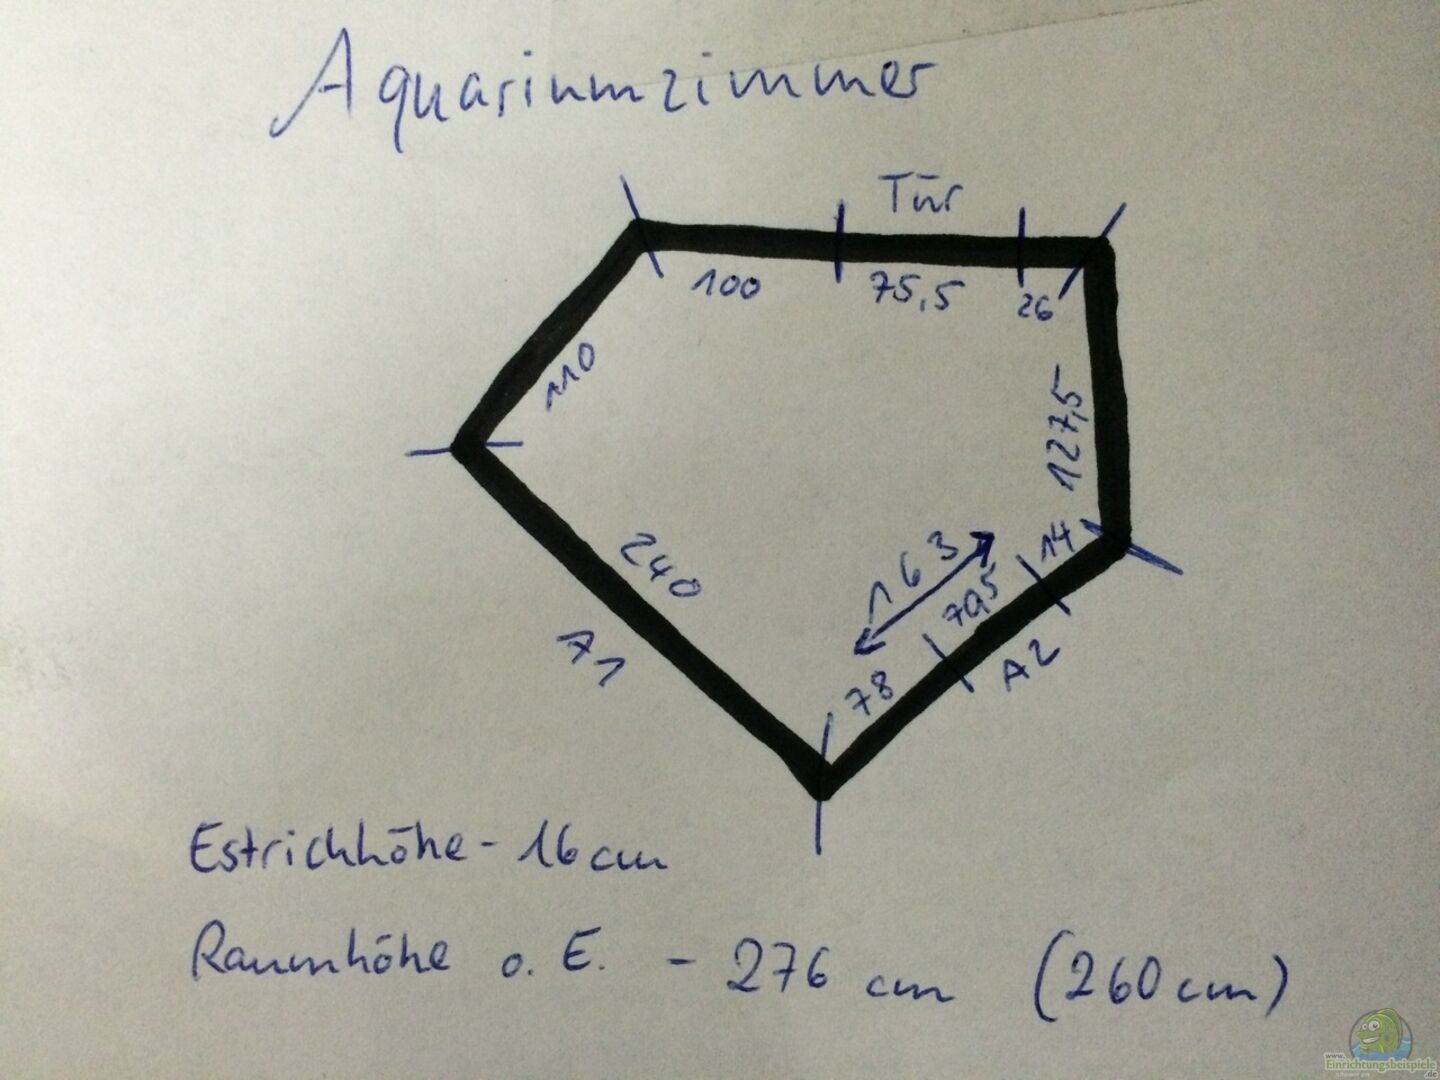 Aquariumzimmer
Tür
100
75,5
26
110
127,5
240
163
14
70,5
78
A1
A2
Estrichhöhe - 16 cm
Raumhöhe o. E. - 276 cm (260 cm)
www.
Einrichtungsbeispiele
.de